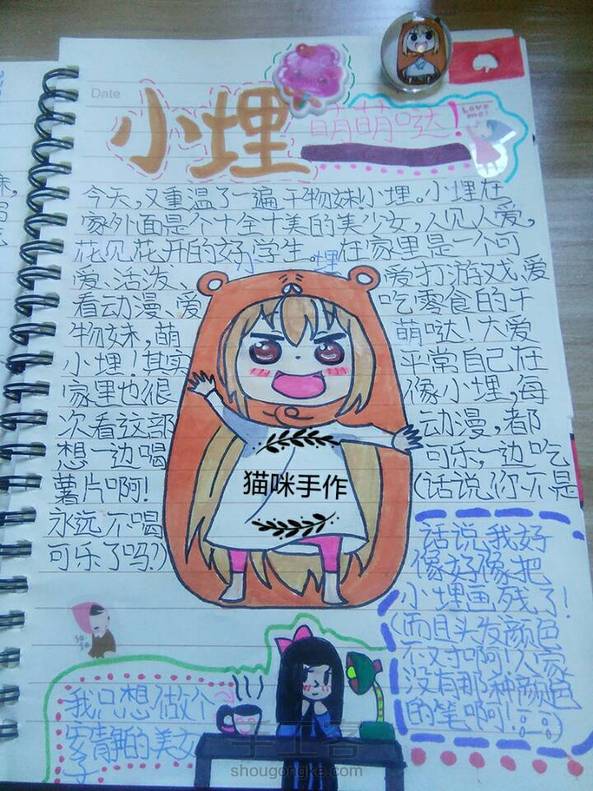 Date
小埋
萌萌哒！
Love me!
今天,又重温了一遍干物妹小埋。小埋在
家外面是个十全十美的美少女,人见人爱,
花见花开的好学生。在家里是一个可
小 埋
爱、活泼、 爱打游戏、爱
看动漫、爱 吃零食的干
物妹,萌 萌哒！大爱
小埋！其实 平常自己在
家里也很 像小埋,每
次看这部 动漫,都
想一边喝 可乐,一边吃
薯片啊！ (话说,你不是
永远不喝
可乐了吗？)
猫咪手作
话说,我好
像好像把
小埋画残了！
(而且头发颜色
不对啊！人家
没有那种颜色
的笔啊！
我只想做个
安静的美女
子
手工客
shougongke.com